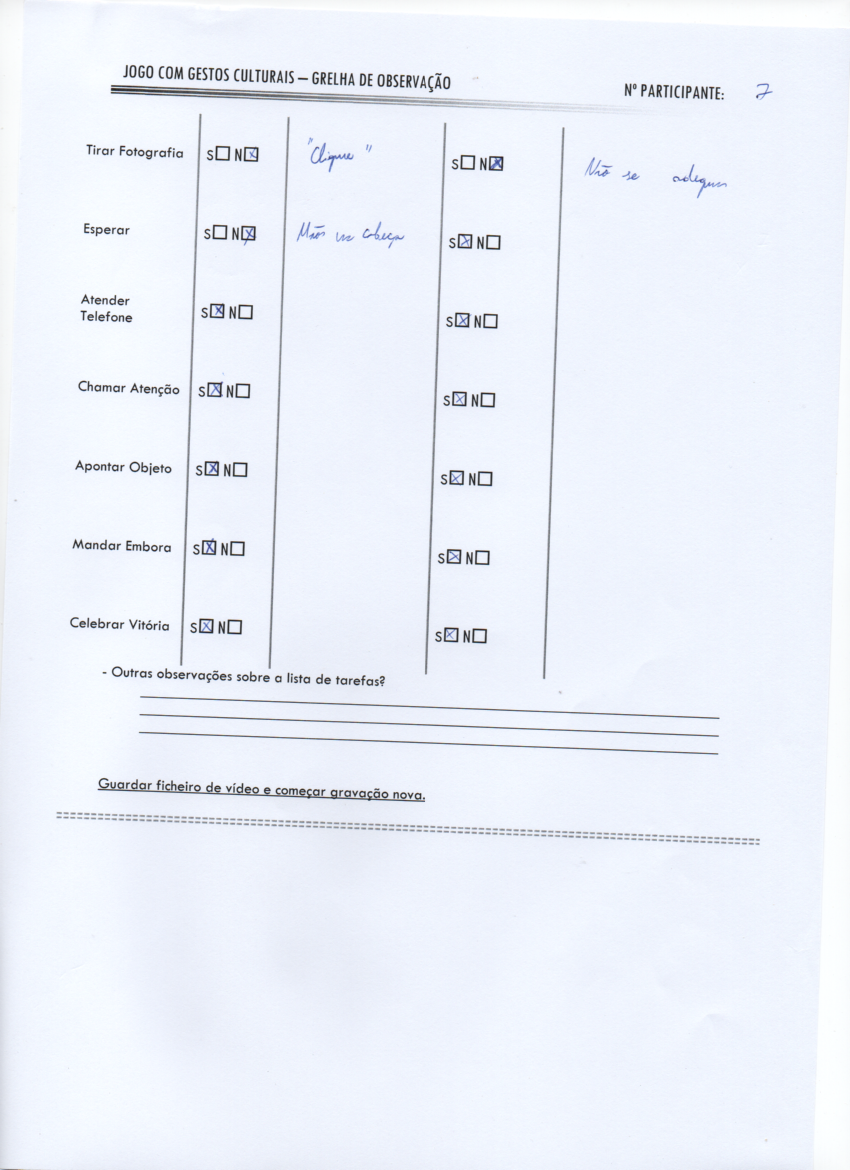 JOGO COM GESTOS CULTURAIS – GRELHA DE OBSERVAÇÃO
Nº PARTICIPANTE: 7
Tirar Fotografia S☐ N☒ "Clique" S☐ N☒ Não se adequa
Esperar S☐ N☒ Mãos na cabeça S☒ N☐
Atender
Telefone S☒ N☐ S☒ N☐
Chamar Atenção S☒ N☐ S☒ N☐
Apontar Objeto S☒ N☐ S☒ N☐
Mandar Embora S☒ N☐ S☒ N☐
Celebrar Vitória S☒ N☐ S☒ N☐
- Outras observações sobre a lista de tarefas?
Guardar ficheiro de vídeo e começar gravação nova.